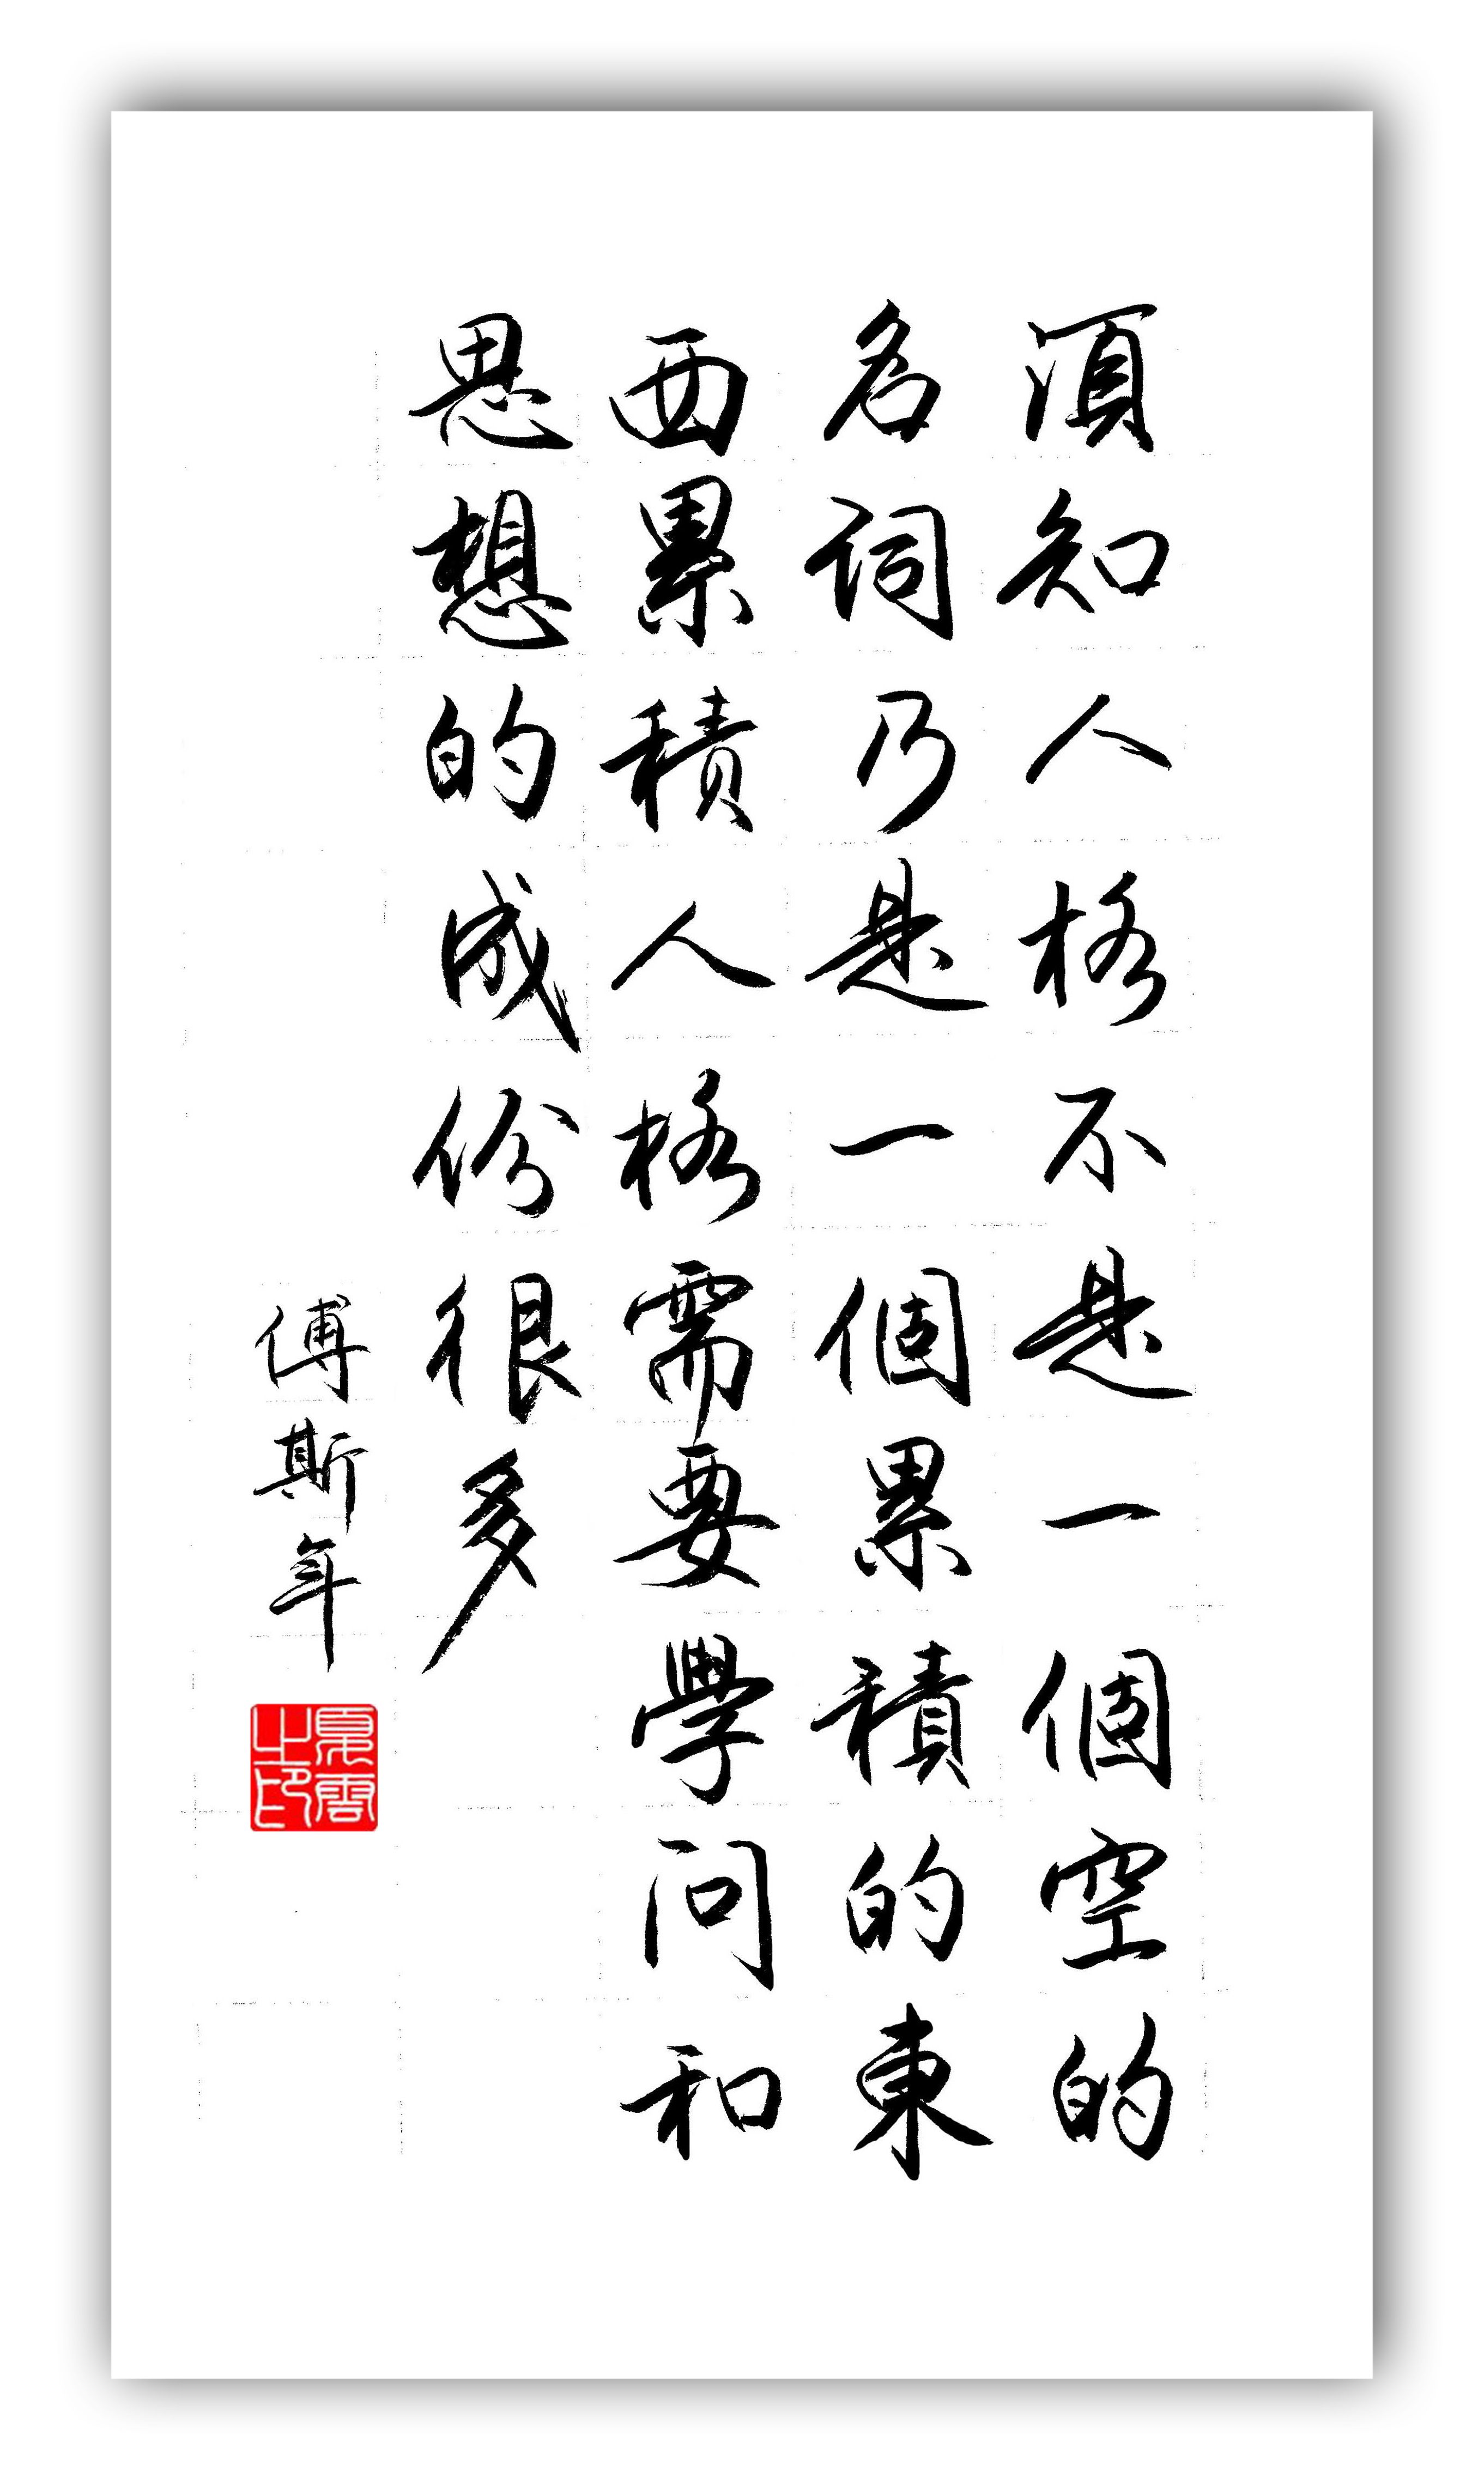 須知人格不是一個空的
名詞乃是一個累積的東
西累積人格需要學问和
思想的成份很多
傅斯年